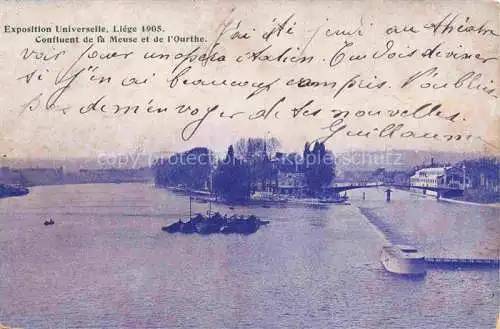 Exposition Universelle, Liége 1905.
Confluent de la Meuse et de l'Ourthe.
J'ai été jeudi au théatre
voir jouer un opéra italien. Tu dois deviner
si j'en ai beaucoup compris. N'oublies
pas de m'envoyer de tes nouvelles.
Guillaume
copyright-protected
copyright-protected